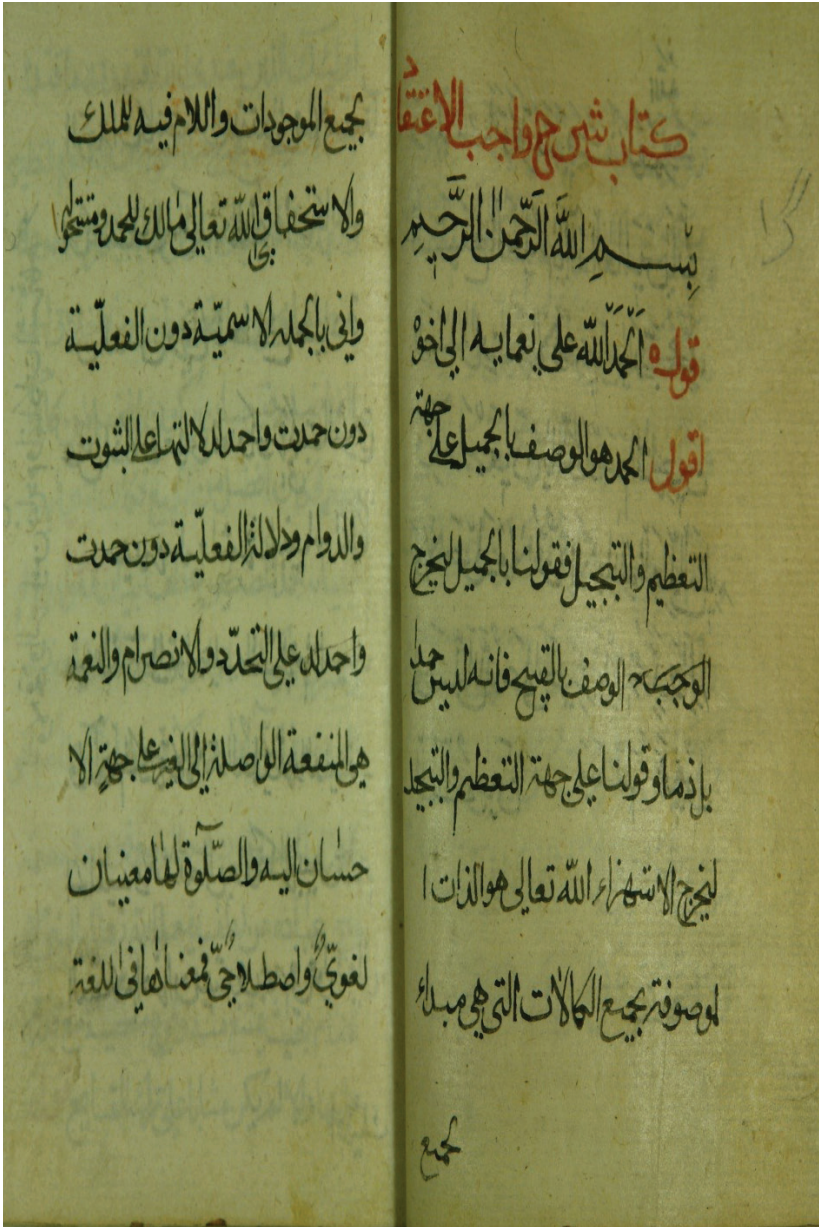 كتاب شرح واجب الاعتقاد
بِسمِ اللَّهِ الرَّحمنِ الرَّحِيمِ
قوله اَلحمدَ لله على نعمايه الى اخره
اقول الحمد هو الوصف بالجميل على جهة
التعظيم والتبجيل فقولنا بالجميل ليخرج
الوصف بالقبيح فانه ليس حمدا
بل ذما وقولنا على جهة التعظيم والتبجيل
ليخرج الاستهزاء الله تعالى هو الذات ا
لموصوفة بجميع الكمالات التي هي مبداء
لجميع
لجميع الموجودات واللام فيه للملك
والاستحقاق اي الله تعالى مالك للحمد ومستحق له
واتى بالجمله الاسميّة دون الفعليّة
دون حمدت واحمد لدلالتها على الثبوت
والدوام ودلالة الفعليّة دون حمدت
واحمد على التجدّد والانصرام والنعمة
هي المنفعة الواصلة الى الغير على جهةٍ الا
حسان اليه والصّلوة لها معنيان
لغويٌّ واصطلاحيٌّ فمعناها في اللغة